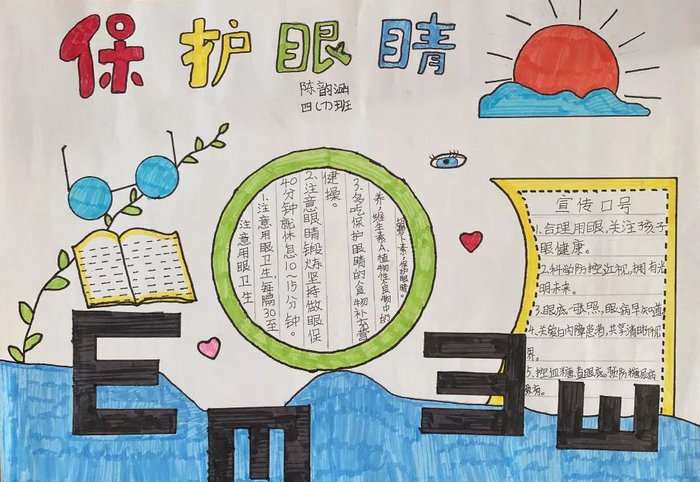 保护眼睛
陈韵涵
四(7)班
注意用眼卫生
1.注意用眼卫生,每隔30至
40分钟就休息10~15分钟。
2.注意眼睛锻炼坚持做眼保
健操。
3.多吃保护眼睛的食物补充营
养,维生素A,植物性食物中的
卜素,保护眼睛。
宣传口号
1.合理用眼,关注孩子
眼健康。
2.科学防控近视,拥有光
明未来。
3.眼底一张照,眼病早知道
4.关爱白内障患者,共享清晰视
界。
5.控血糖,查眼底,预防糖尿病
E
m
Ǝ
w